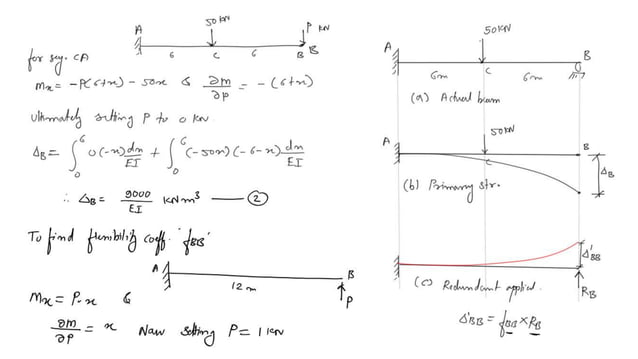 50 kN
P kN
A
6
C
6
B
B
for seg. CA
Mx = -P(6+x) - 50x & ∂m/∂p = -(6+x)
Ultimately setting P to 0 kN
Δ_B = ∫_0^6 0(-x)dx/EI + ∫_0^6 (-50x)(-6-x)dx/EI
∴ Δ_B = 9000/EI kNm³ —— ②
To find flexibility coeff. 'f_BB'
A
B
12 m
P
Mx = P.x &
∂m/∂p = x Now setting P = 1 kN
50kN
A
B
6m
C
6m
(a) Actual beam
50kN
A
B
C
Δ_B
(b) Primary str.
Δ'_BB
(c) Redundant applied.
R_B
Δ'_BB = f_BB × R_B